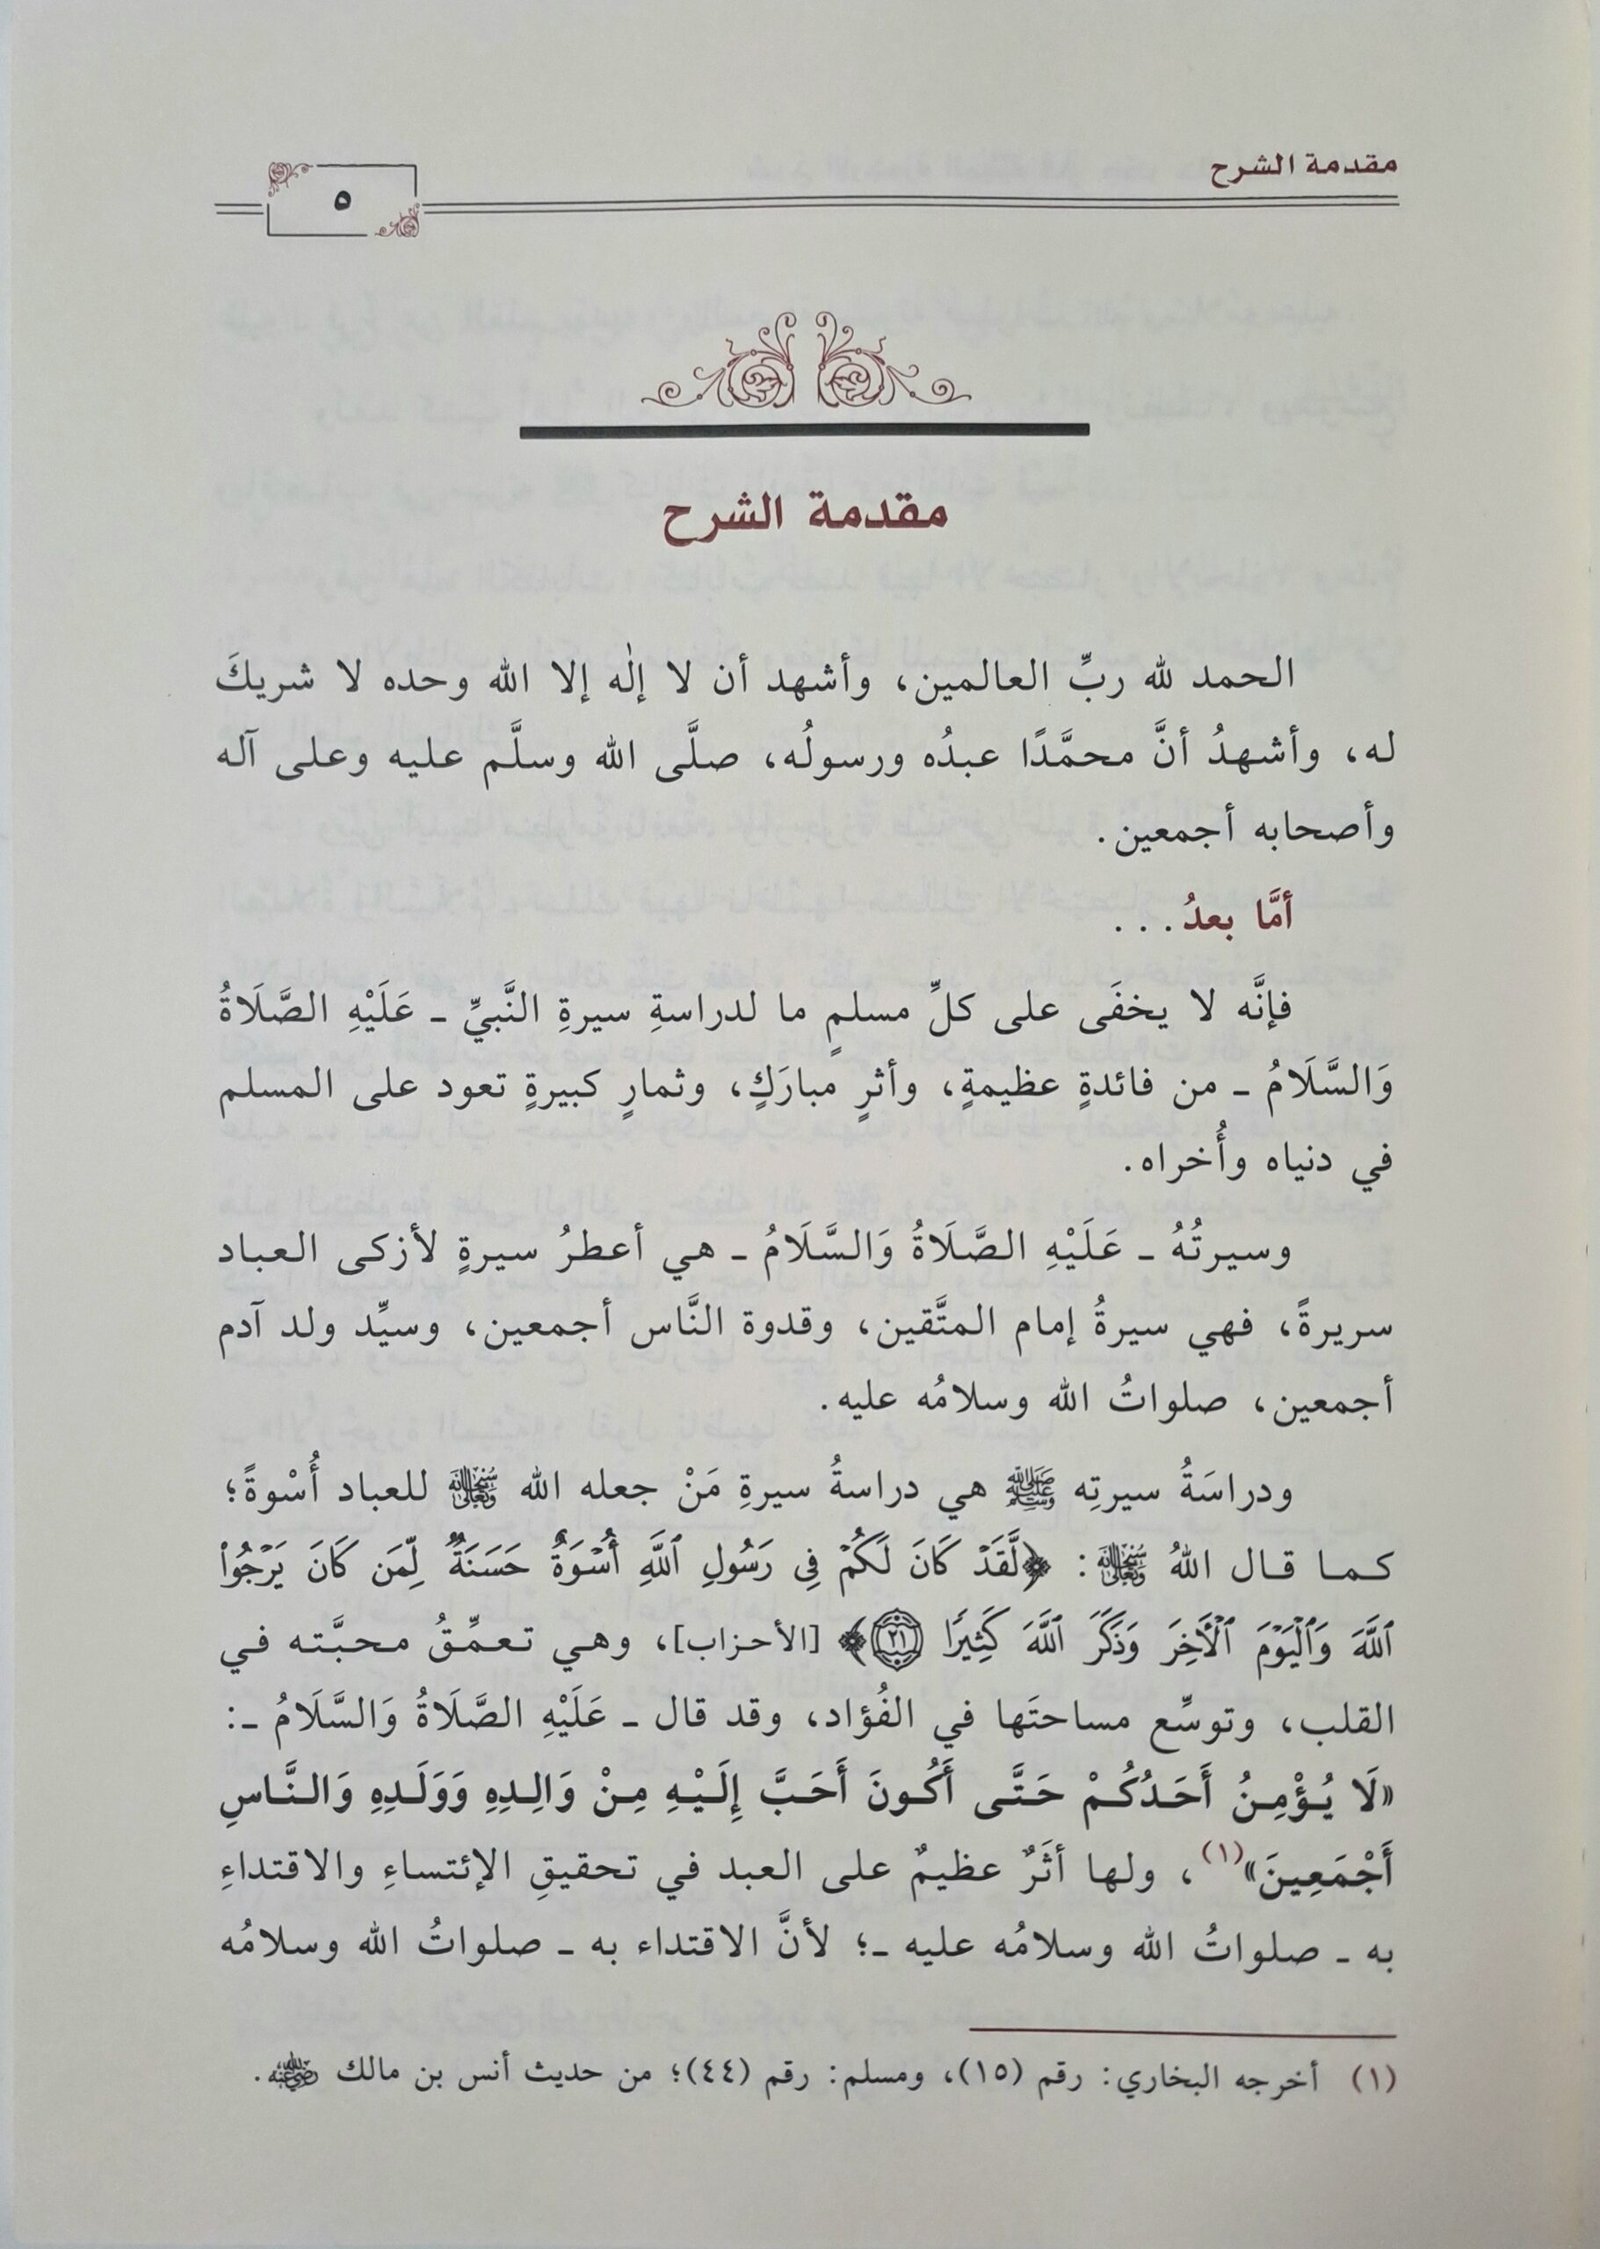 مقدمة الشرح
٥
مقدمة الشرح
الحمد لله ربِّ العالمين، وأشهد أن لا إلٰه إلا الله وحده لا شريكَ
له، وأشهدُ أنَّ محمَّدًا عبدُه ورسولُه، صلَّى الله وسلَّم عليه وعلى آله
وأصحابه أجمعين.
أمَّا بعدُ...
فإنَّه لا يخفَى على كلِّ مسلمٍ ما لدراسةِ سيرةِ النَّبيِّ ـ عَلَيْهِ الصَّلَاةُ
وَالسَّلَامُ ـ من فائدةٍ عظيمةٍ، وأثرٍ مبارَكٍ، وثمارٍ كبيرةٍ تعود على المسلم
في دنياه وأُخراه.
وسيرتُهُ ـ عَلَيْهِ الصَّلَاةُ وَالسَّلَامُ ـ هي أعطرُ سيرةٍ لأزكى العباد
سريرةً، فهي سيرةُ إمام المتَّقين، وقدوة النَّاس أجمعين، وسيِّد ولد آدم
أجمعين، صلواتُ الله وسلامُه عليه.
ودراسَةُ سيرتِه ﷺ هي دراسةُ سيرةِ مَنْ جعله الله سُبْحَانَهُ وَتَعَالَى للعباد أُسْوةً؛
كما قال اللهُ سُبْحَانَهُ وَتَعَالَى: ﴿لَّقَدْ كَانَ لَكُمْ فِى رَسُولِ ٱللَّهِ أُسْوَةٌ حَسَنَةٌ لِّمَن كَانَ يَرْجُوا۟
ٱللَّهَ وَٱلْيَوْمَ ٱلْـَٔاخِرَ وَذَكَرَ ٱللَّهَ كَثِيرًا ٢١﴾ [الأحزاب]، وهي تعمِّقُ محبَّته في
القلب، وتوسِّع مساحتَها في الفُؤاد، وقد قال ـ عَلَيْهِ الصَّلَاةُ وَالسَّلَامُ ـ:
«لَا يُؤْمِنُ أَحَدُكُمْ حَتَّى أَكُونَ أَحَبَّ إِلَيْهِ مِنْ وَالِدِهِ وَوَلَدِهِ وَالنَّاسِ
أَجْمَعِينَ»(١)، ولها أثَرٌ عظيمٌ على العبد في تحقيقِ الإئتساءِ والاقتداءِ
به ـ صلواتُ الله وسلامُه عليه ـ؛ لأنَّ الاقتداء به ـ صلواتُ الله وسلامُه
(١) أخرجه البخاري: رقم (١٥)، ومسلم: رقم (٤٤)؛ من حديث أنس بن مالك رضي الله عنه.